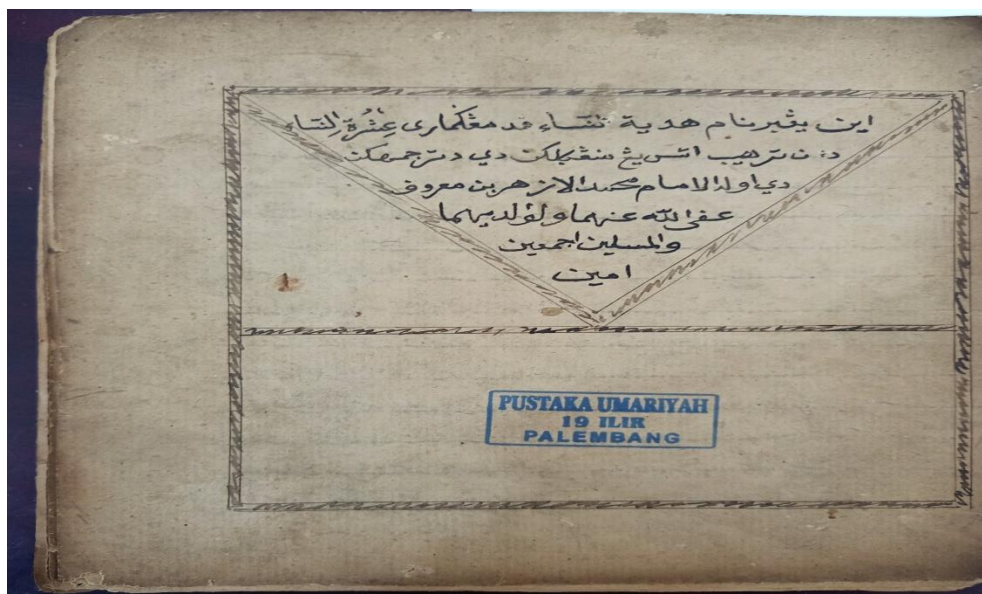 اين يڠبرنام هدية ننساء ڤد مڠڬماري عِشْرَة النساء
دان ترهيب اتس يڠ منڠݢلكن دي دترجمهكن
دي اوله الامام محمد الازهر بن معروف
عفى الله عنهما ولوالديهما
والمسلمين اجمعين
امين
PUSTAKA UMARIYAH
19 ILIR
PALEMBANG